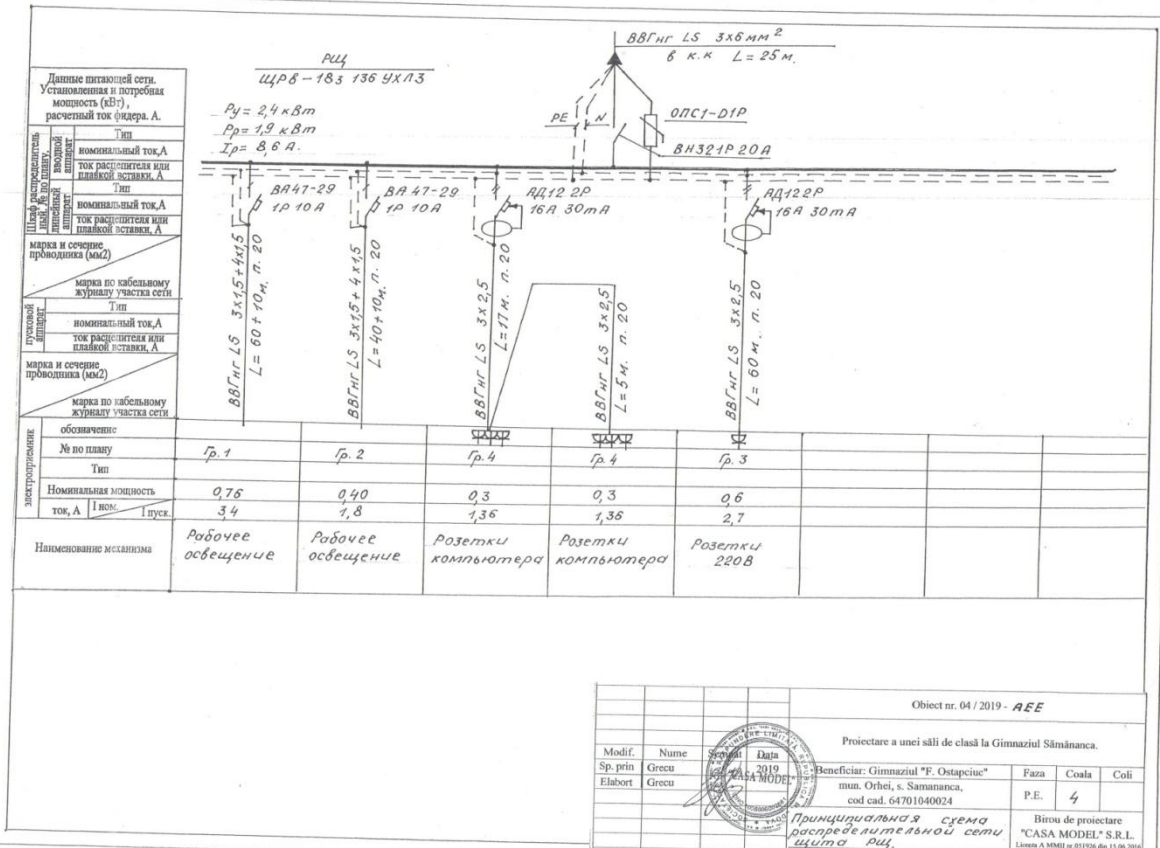 ВВГнг LS 3x6мм²
в к.к L=25 м.
РЩ
ЩРВ-18з 136 УХЛ3
Ру= 2,4 кВт
Рр= 1,9 кВт
Iр= 8,6 А.
PE
N
ОПС1-D1P
ВН321Р 20А
Данные питающей сети.
Установленная и потребная
мощность (кВт) ,
расчетный ток фидера. А.
Шкаф распределитель
ный. № по плану.
вводной
аппарат
Тип
номинальный ток,А
ток расцепителя или
плавкой вставки, А
линейный
аппарат
Тип
номинальный ток,А
ток расцепителя или
плавкой вставки, А
ВА47-29
1Р 10А
ВА 47-29
1Р 10А
АД12 2Р
16А 30mА
АД12 2Р
16А 30mА
марка и сечение
проводника (мм2)
марка по кабельному
журналу участка сети
пусковой
аппарат
Тип
номинальный ток,А
ток расцепителя или
плавкой вставки, А
марка и сечение
проводника (мм2)
марка по кабельному
журналу участка сети
ВВГнг LS 3x1,5+4x1,5
L= 60+10м. п. 20
ВВГнг LS 3x1,5+ 4x1,5
L=40+10м. п. 20
ВВГнг LS 3x2,5
L=17м. п. 20
ВВГнг LS 3x2,5
L=5м. п. 20
ВВГнг LS 3x2,5
L= 60м. п. 20
электроприемник
обозначение
№ по плану Гр. 1 Гр. 2 Гр. 4 Гр. 4 Гр. 3
Тип
Номинальная мощность 0,76 0,40 0,3 0,3 0,6
ток, А I ном. I пуск. 3,4 1,8 1,36 1,36 2,7
Наименование механизма
Рабочее
освещение
Рабочее
освещение
Розетки
компьютера
Розетки
компьютера
Розетки
220В
Obiect nr. 04 / 2019 - AEE
Proiectare a unei săli de clasă la Gimnaziul Sămănanca.
Modif. Nume Semnat Data
Sp. prin Grecu 2019
Elabort Grecu
"CASA MODEL"
Beneficiar: Gimnaziul "F. Ostapciuc"
mun. Orhei, s. Samananca,
cod cad. 64701040024
Faza Coala Coli
P.E. 4
Принципиальная схема
распределительной сети
щита РЩ.
Birou de proiectare
"CASA MODEL" S.R.L.